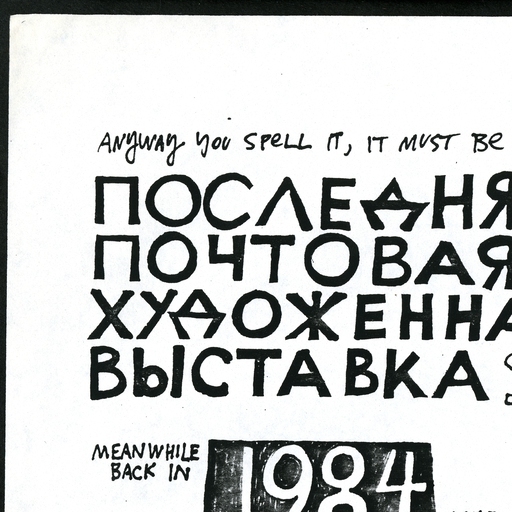 ANYWAY YOU SPELL IT, IT MUST BE
ПОСЛЕДНЯ
ПОЧТОВАЯ
ХУДОЖЕННА
ВЫСТАВКА
MEANWHILE
BACK IN
1984